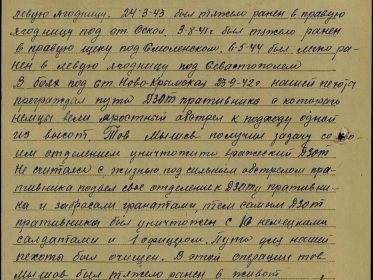 левую ягодицу. 24-3-43 был тяжело ранен в правую
ягодицу под ст. Оскол. 3-8-41г. был тяжело ранен
в правую щеку под Смоленском. 6-5-44 был легко ра-
нен в левую ягодицу под Севастополем
В боях под ст. Ново-Крымская 23-9-42г. нашей пехоте
преграждал путь ДЗОТ противника с которого
немцы вели яростный обстрел к подходу одной
из высот. Тов Мышев получил задачу со сво-
им отделением уничтожить вражеский ДЗОТ
Не считаясь с жизнью под сильным обстрелом про-
тивника подвел свое отделение к ДЗОТу противни-
ка и забросам гранатами, тем самым ДЗОТ
противника был уничтожен с 10 немецкими
солдатами и 1 офицером. Путь для нашей
пехоты был очищен. В этой операции тов.
Мышев был тяжело ранен в живот